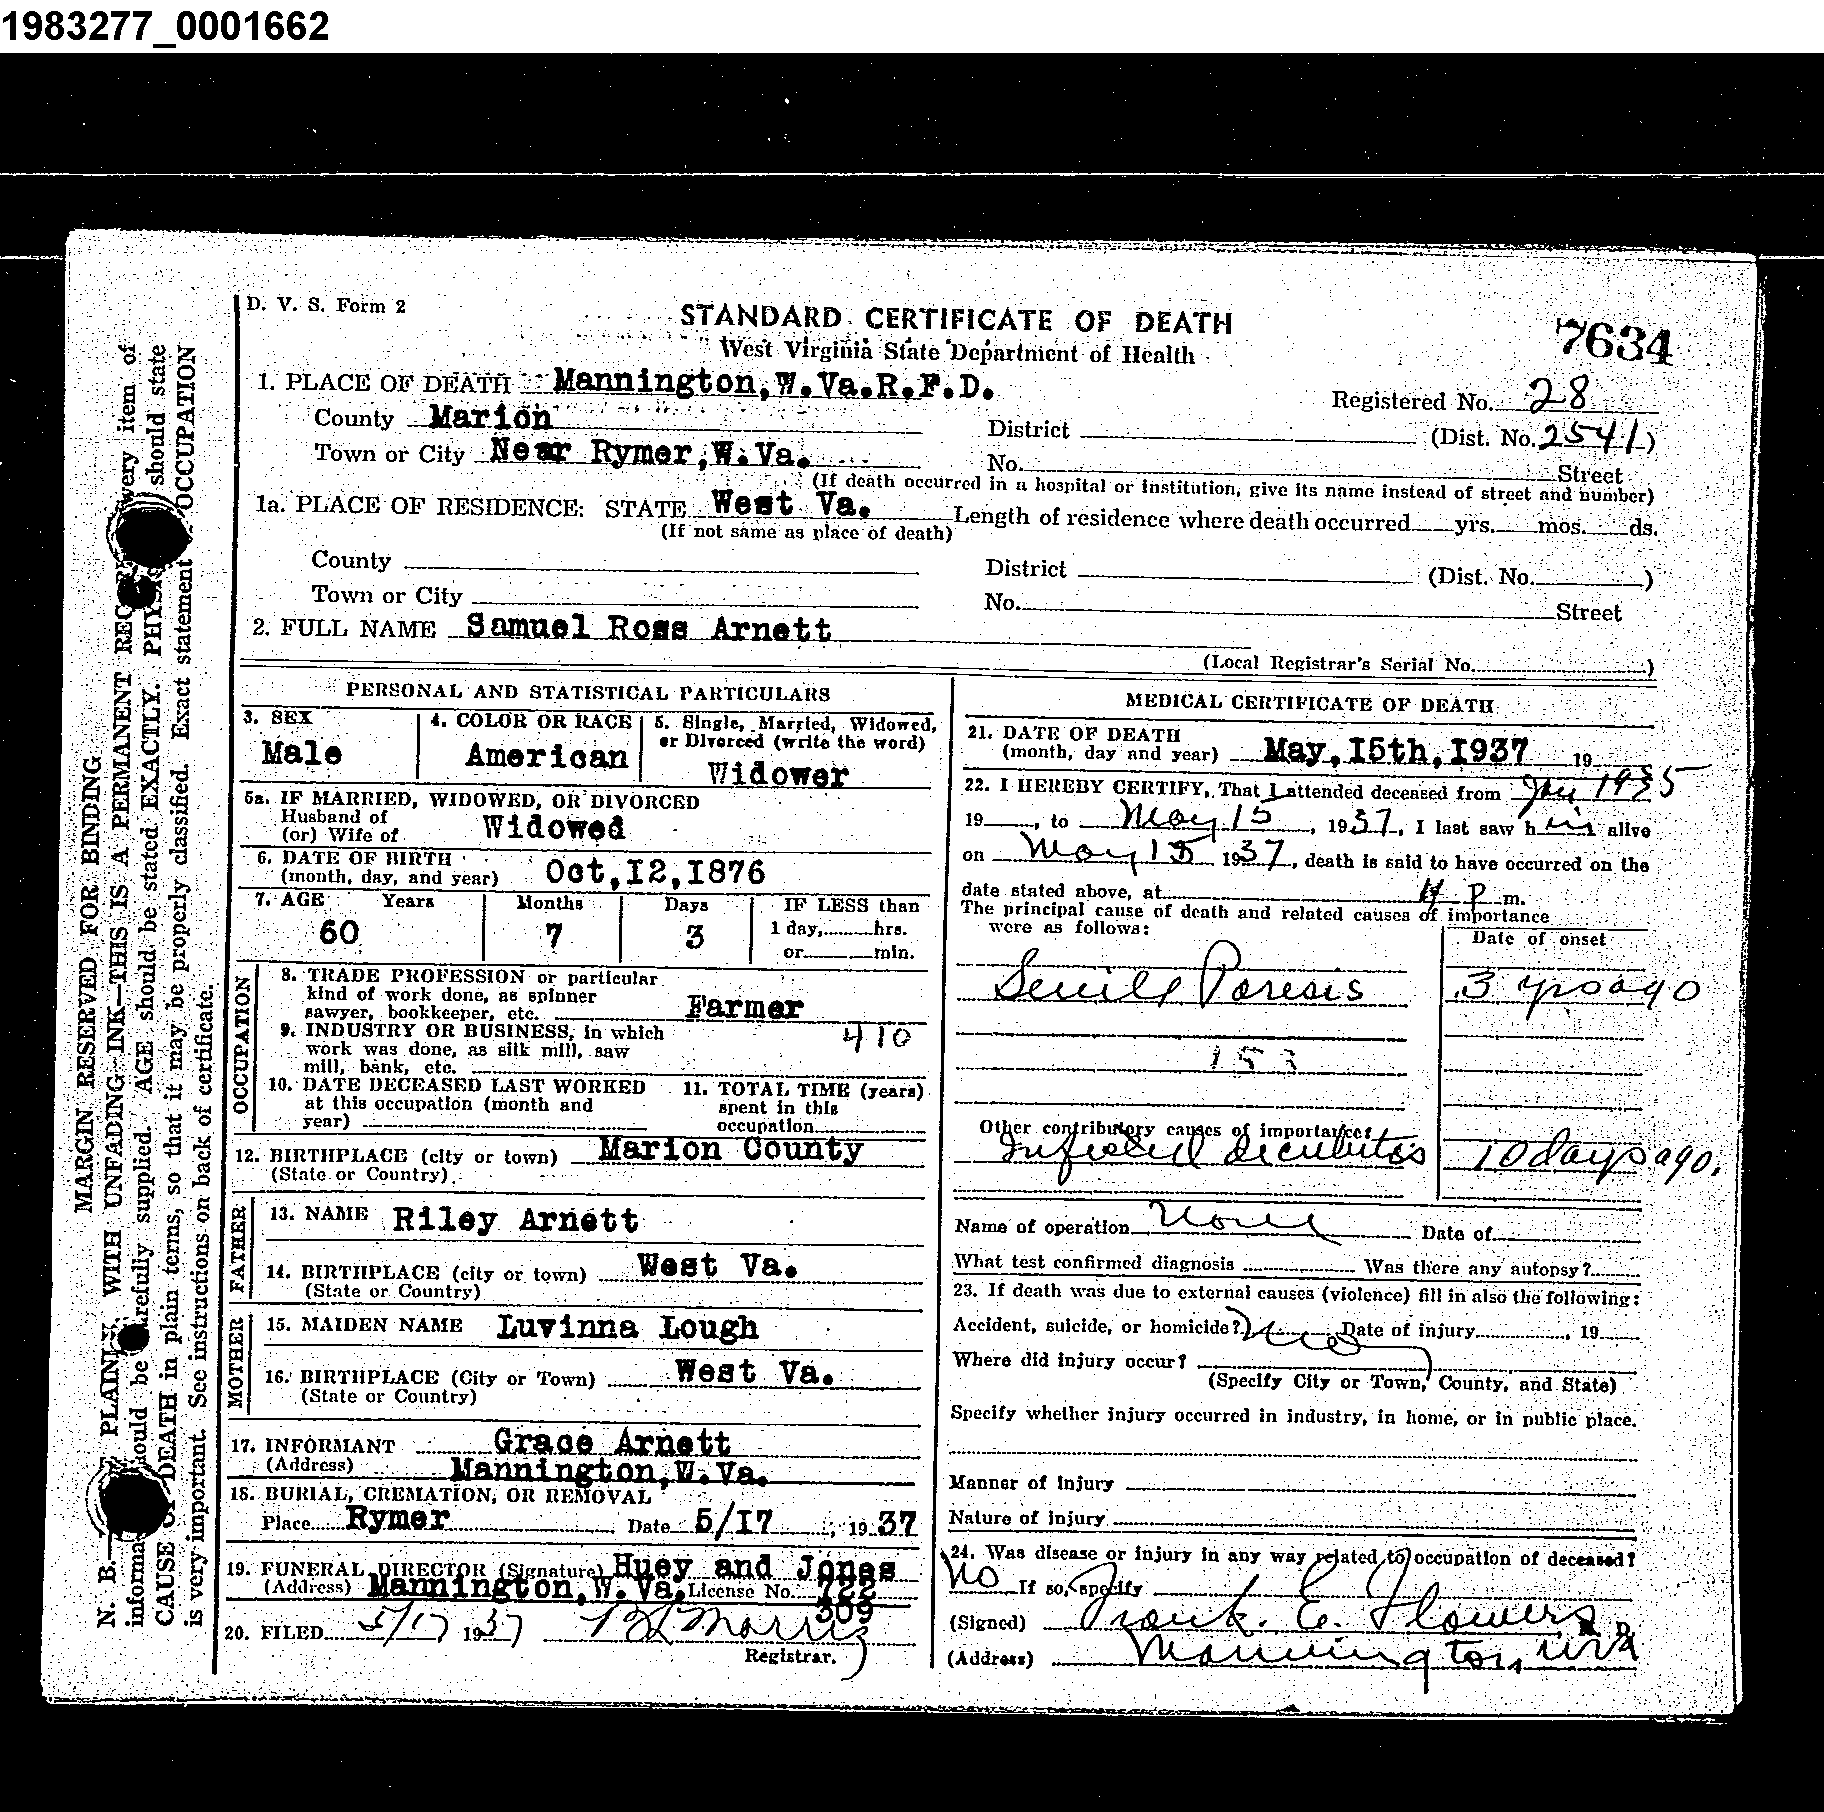 1983277_0001662
D. V. S. Form 2
STANDARD CERTIFICATE OF DEATH
7634
West Virginia State Department of Health
1. PLACE OF DEATH Mannington,W.Va.R.F.D.
Registered No. 28
County Marion
District (Dist. No. 2541)
Town or City Near Rymer,W.Va.
No. Street
(If death occurred in a hospital or institution, give its name instead of street and number)
1a. PLACE OF RESIDENCE: STATE West Va. Length of residence where death occurred yrs. mos. ds.
(If not same as place of death)
County District (Dist. No. )
Town or City No. Street
2. FULL NAME Samuel Ross Arnett
(Local Registrar's Serial No. )
PERSONAL AND STATISTICAL PARTICULARS
3. SEX
Male
4. COLOR OR RACE
American
5. Single, Married, Widowed,
or Divorced (write the word)
Widower
5a. IF MARRIED, WIDOWED, OR DIVORCED
Husband of
(or) Wife of Widowed
6. DATE OF BIRTH
(month, day, and year) Oct,12,1876
7. AGE Years Months Days IF LESS than
60 7 3 1 day, hrs.
or min.
OCCUPATION
8. TRADE PROFESSION or particular
kind of work done, as spinner
sawyer, bookkeeper, etc. Farmer
9. INDUSTRY OR BUSINESS, in which 410
work was done, as silk mill, saw
mill, bank, etc.
10. DATE DECEASED LAST WORKED
at this occupation (month and
year)
11. TOTAL TIME (years)
spent in this
occupation
12. BIRTHPLACE (city or town) Marion County
(State or Country)
FATHER
13. NAME Riley Arnett
14. BIRTHPLACE (city or town) West Va.
(State or Country)
MOTHER
15. MAIDEN NAME Luvinna Lough
16. BIRTHPLACE (City or Town) West Va.
(State or Country)
17. INFORMANT Grace Arnett
(Address) Mannington,W.Va.
18. BURIAL, CREMATION, OR REMOVAL
Place Rymer Date 5/17, 1937
19. FUNERAL DIRECTOR (Signature) Huey and Jones
(Address) Mannington,W.Va. License No. 722
309
20. FILED 5/17 1937 Morris
Registrar.
MEDICAL CERTIFICATE OF DEATH
21. DATE OF DEATH
(month, day and year) May,15th,1937 19
22. I HEREBY CERTIFY, That I attended deceased from Jan 1935
19 , to May 15, 1937, I last saw him alive
on May 15 1937, death is said to have occurred on the
date stated above, at 4 P m.
The principal cause of death and related causes of importance
were as follows:
Date of onset
Senile Paresis 3 yrs ago
153
Other contributory causes of importance:
Infected decubitus 10 days ago.
Name of operation None Date of
What test confirmed diagnosis Was there any autopsy?
23. If death was due to external causes (violence) fill in also the following:
Accident, suicide, or homicide? No Date of injury , 19
Where did injury occur?
(Specify City or Town, County, and State)
Specify whether injury occurred in industry, in home, or in public place.
Manner of injury
Nature of injury
24. Was disease or injury in any way related to occupation of deceased?
No If so, specify
(Signed) Frank. E. Flowers M. D.
(Address) Mannington, WVa
MARGIN RESERVED FOR BINDING
N. B.— PLAINLY, WITH UNFADING INK—THIS IS A PERMANENT RECORD. Every item of
should be carefully supplied. AGE should be stated EXACTLY. should state
CAUSE OF DEATH in plain terms, so that it may be properly classified. Exact statement OCCUPATION
is very important. See instructions on back of certificate.